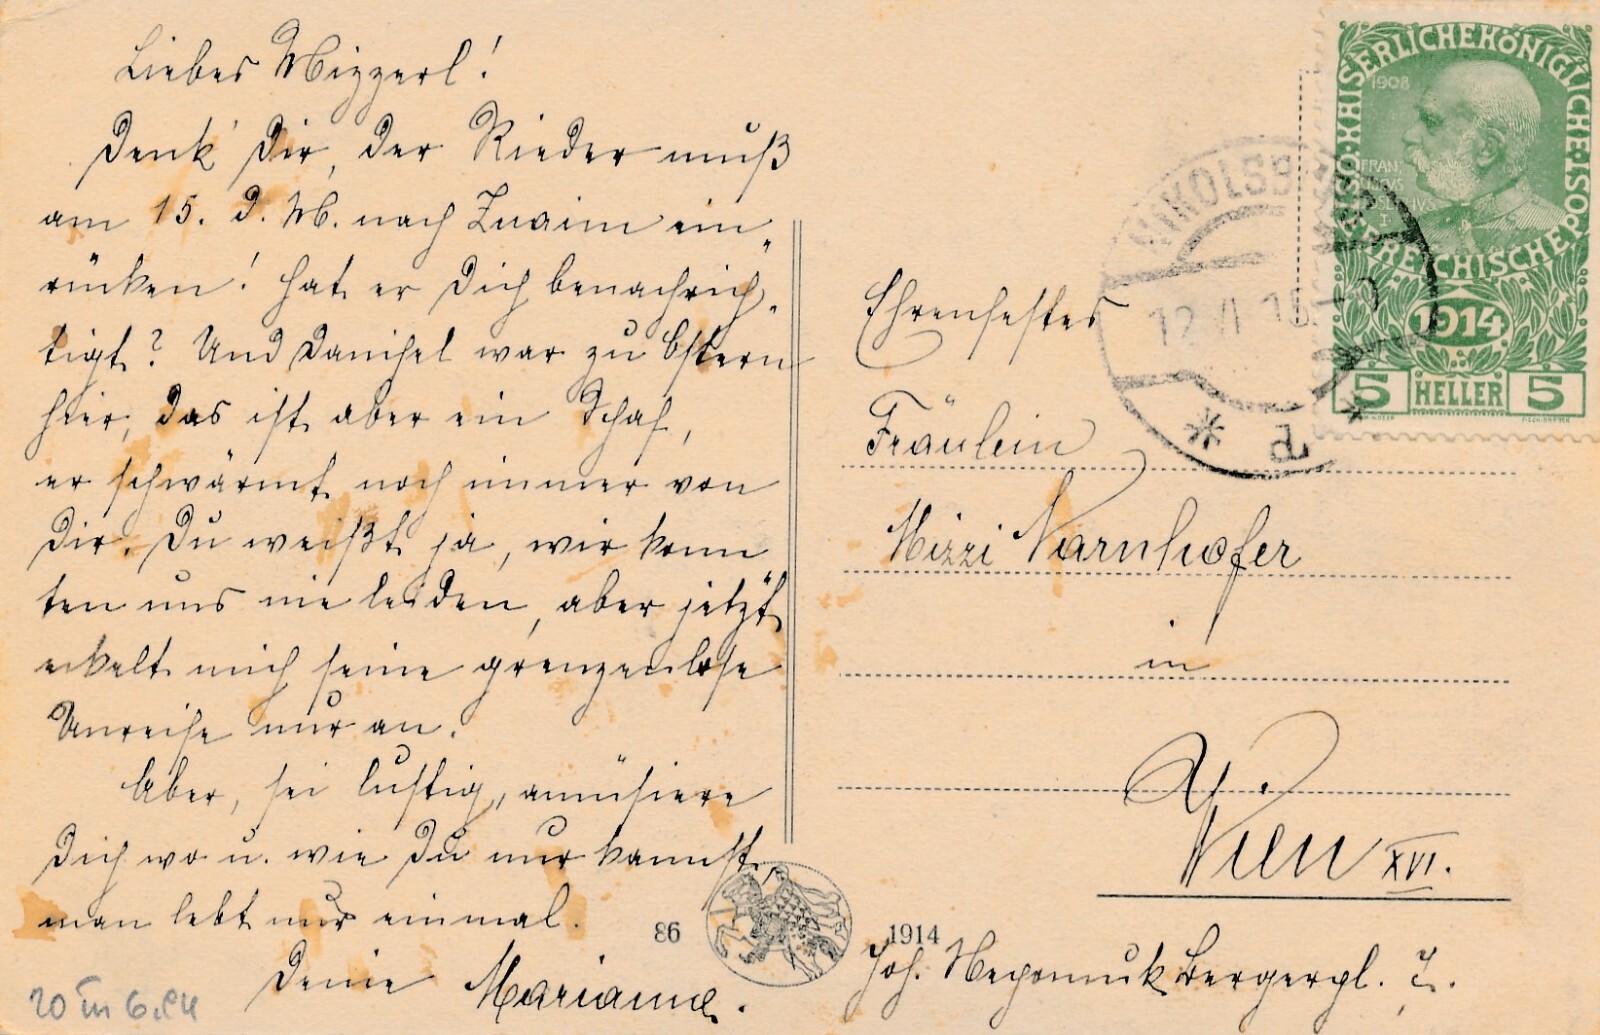 Liebes Mizzerl!
Denk' Dir, der Rieder muß
am 15. d. M. nach Znaim ein-
rücken! hat er Dich benachrich-
tigt? Und Danihel war zu Ostern
hier, das ist aber ein Schaf,
er schwärmt noch immer von
Dir. Du weißt ja, wir konn
ten uns nie leiden, aber jetzt
eckelt mich seine grenzenlose
Unreife nur an.
Aber, sei lustig, amüsiere
Dich wo u. wie Du nur kannst,
man lebt nur einmal.
Deine Marianne.
20 III 6.
86
1914
KAISERLICHE KÖNIGLICHE ÖSTERREICHISCHE POST
1908
FRAN
I
1914
5 HELLER 5
NIKOLSB
12 VI 15
d
Ehrenfestes
Fräulein
Mizzi Varnhofer
in
Wien XVI.
Joh. Nepomuk Bergerpl. 7.